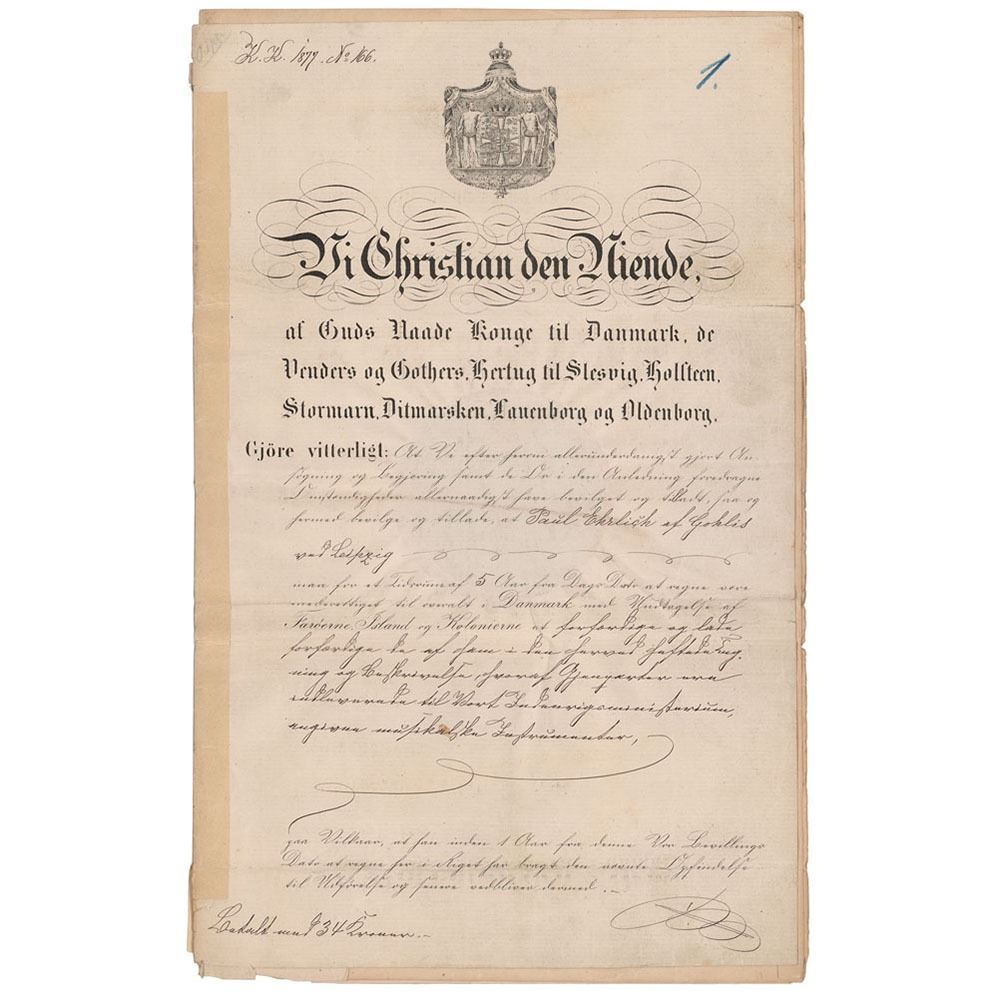 K. K. 1877. No 166.
1.
Vi Christian den Niende,
af Guds Naade Konge til Danmark, de
Venders og Gothers, Hertug til Slesvig, Holsteen,
Stormarn, Ditmarsken, Lauenborg og Oldenborg,
Gjöre vitterligt: At Vi efter herom allerunderdanigst gjort An-
søgning og Begjering samt de Os i den Anledning foredragne
Omstændigheder allernaadigst have bevilget og tilladt, saa og
hermed bevilge og tillade, at Paul Ehrlich af Gohlis
ved Leipzig
maa for et Tidsrum af 5 Aar fra Dags Dato at regne være
eneberettiget til overalt i Danmark med Undtagelse af
Færöerne, Island og Kolonierne at forfærdige og lade
forfærdige de af ham i den herved heftede Teg-
ning og Beskrivelse, hvoraf Gjenparter ere
indleverede til Vort Indenrigsministerium,
angivne musikalske Instrumenter,
paa Vilkaar, at han inden 1 Aar fra denne Vor Bevillings
Dato at regne her i Riget har bragt den nævnte Opfindelse
til Udførelse og senere vedbliver dermed.
Betalt med 34 Kroner.